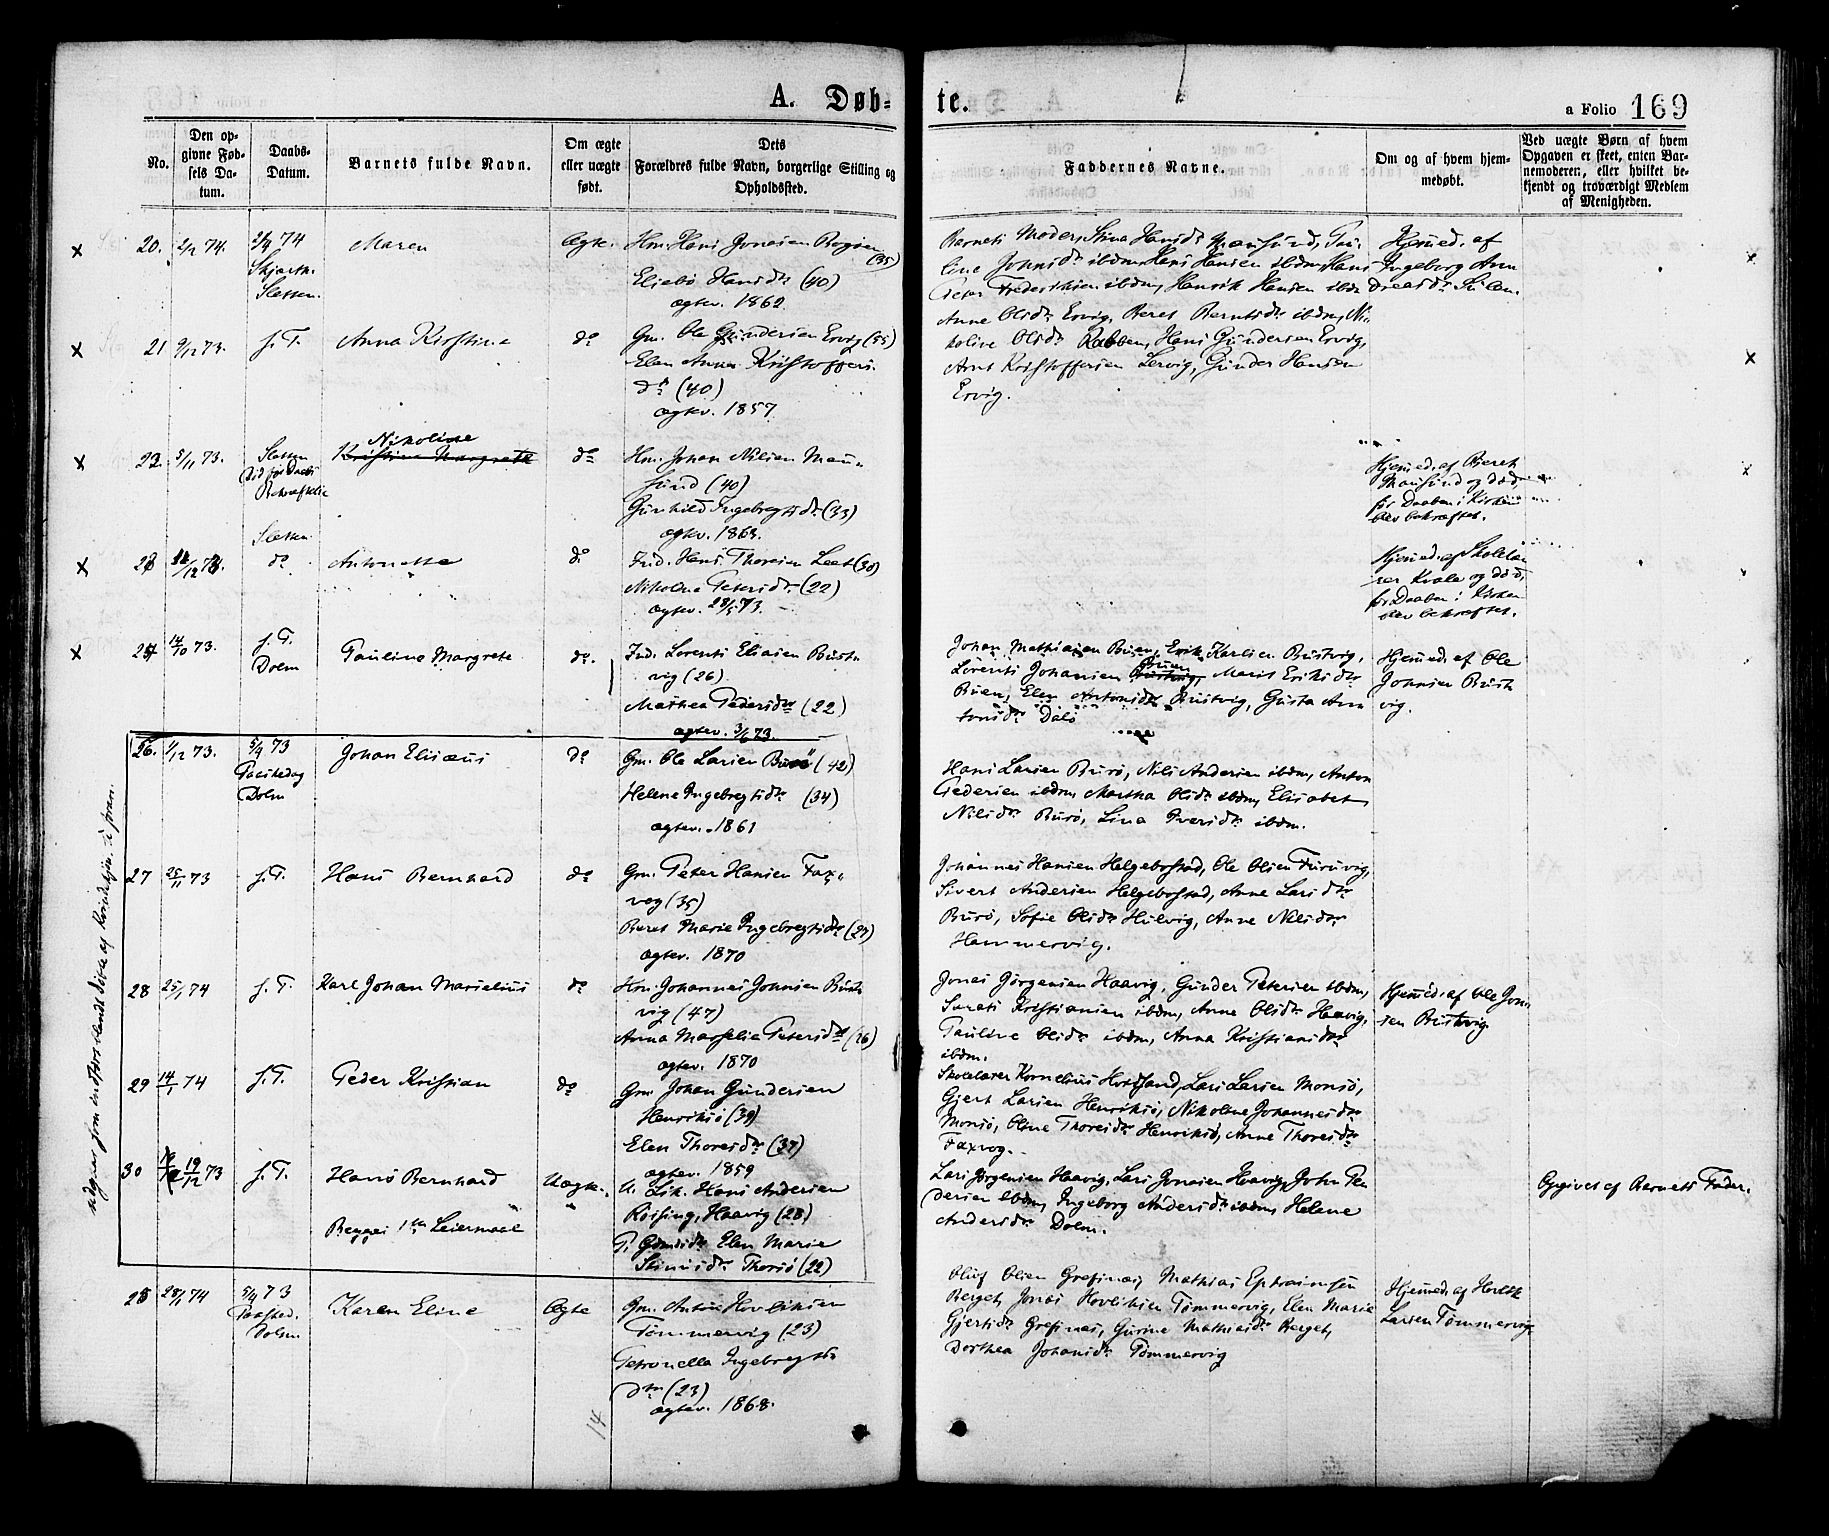 A. Døb-
te.
a Folio 169
No.
Den op-
givne Fød-
sels Da-
tum.
Daabs-
Datum.
Barnets fulde Navn.
Om ægte
eller uægte
født.
Dets
Forældres fulde Navn, borgerlige Stilling og
Opholdssted.
Faddernes Navne.
Om og af hvem hjem-
medøbt.
Ved uægte Børn af hvem
Opgaven er skeet, enten Bar-
nemoderen, eller hvilket be-
kjendt og troværdigt Medlem
af Menigheden.
20. 2/1 74.
Sletten.
Maren
Ægte.
Hm. Hans Jonsen
(35)
Hansdr (40)
ægtev. 1862
Barnets Moder, Stina Hansdr Mausund, Pau-
line Johnsdr ibdm, Hans Hansen ibdm, Hans
Peter Frederiksen ibdm, Henrik Hansen ibdm
Hjemmed. af
Ingeborg An-
dreasdr
21 9/12 73.
f. T.
Anna Kirstine
do
Gm. Ole Gundersen Ervig (55)
Elen Anna Kristoffers-
dr (40)
ægtev. 1857
Anne Olsdr Ervig, Beret Berntsdr ibdm, Ni-
koline Olsdr Rabben, Hans Gundersen Ervig,
Arnt Kristoffersen Lervig, Gunder Hansen
Ervig.
22. 5/11 73.
Sletten
Nikoline
Kristine Margrete
do
Hm. Johan Nilsen Mau-
sund (40)
Gunhild Ingebregtsdr (33)
ægtev. 1863.
Hjemmed. af Beret
Mausund og død
før Daaben i Kirken
blev bekræftet.
Sletten
do
Antonette
do
Ind. Hans Thoresen (30)
Nikoline Petersdr (22)
ægtev. 28/5 73.
Hjemmed. af Skolelæ-
rer Kvale og død
før Daaben i Kirken
blev bekræftet.
24 14/10 73.
f. T.
Dolm
Pauline Margrete
do.
Ind. Lorents Eliasen Bust-
vig (26)
Mathea Pedersdr (22)
ægtev. 3/6 73
Johan Mathiasen Buen, Erik Karlsen Bustvig,
Lorents Johansen Bustvig, Buen Marit Eriksdr
Buen, Elen Antonsdr Bustvig, Gusta An-
tonsdr Dalø
Hjemmed. af Ole
Johnsen Bust-
vig.
26. 1/12 73.
5/4 73
Paaskedag
Dolm
Johan Elisæus
do
Gm. Ole Larsen Burø (42)
Helene Ingebregtsdr (34)
ægtev. 1861
Hans Larsen Burø, Nils Andersen ibdm, Anton
Pedersen ibdm, Martha Olsdr ibdm, Elisabet
Nilsdr Burø, Lina Iversdr ibdm.
27 25/11 73
f. T.
Hans Bernhard
do
Gm. Peter Hansen Fax-
vog (35)
Beret Marie Ingebregtsdr (24)
ægtev. 1870
Johannes Hansen Helgebostad, Ole Olsen Furuvig,
Sivert Andersen Helgebostad, Anne Larsdr
Burø, Sofie Olsdr Hulvig, Anne Nilsdr
Hammervig.
28 25/1 74
f. T.
Karl Johan Marselius
do
Hm. Johannes Johnsen Bust-
vig (47)
Anna Marselie Petersdr (26)
ægtev. 1870
Jonas Jørgensen Haavig, Gunder Petersen ibdm,
Kristiansen ibdm, Anne Olsdr Haavig,
Pauline Olsdr ibdm, Anna Kristiansdr
ibdm.
Hjemmed. af Ole John-
sen Bustvig
29 14/1 74
f. T.
Peder Kristian
do
Gm Johan Gundersen
Henriksø (39)
Elen Thoresdr (37)
ægtev. 1859
Skolelærer Kornelius, Lars Larsen Monsø,
Gjert Larsen Henriksø, Nikoline Johannesdr
Monsø, Oline Thoresdr Henriksø, Anne Thoresdr
Faxvog.
30 19/12 73
f. T.
Hans Bernhard
Begges 1ste Leiermaal
Uægte.
U. Hans Andersen
Røising, Haavig (28)
P. Elen Marie
Thorsø (22)
Lars Jørgensen Haavig, Lars Jonsen Haavig, John Pe-
dersen ibdm, Ingeborg Andersdr ibdm, Helene
Andersdr Dolm.
Opgivet af Barnets Fader.
25 28/1 74
5/4 73
Paasked.
Dolm
Karen Eline
Ægte
Gm. Anton Hovliksen
Tømmervig (23)
Petronella Ingebregts-
dtr (23)
ægtev. 1868.
14
Oluf Olsen Grefsnes, Mathias Ephraimsen
Berget, Jonas Hovliksen Tømmervig, Elen Marie
Gjertsdr Grefsnes, Gurine Mathiasdr Berget,
Dorthea Johansdr Tømmervig
Hjemmed. af
Larsen Tømmervig